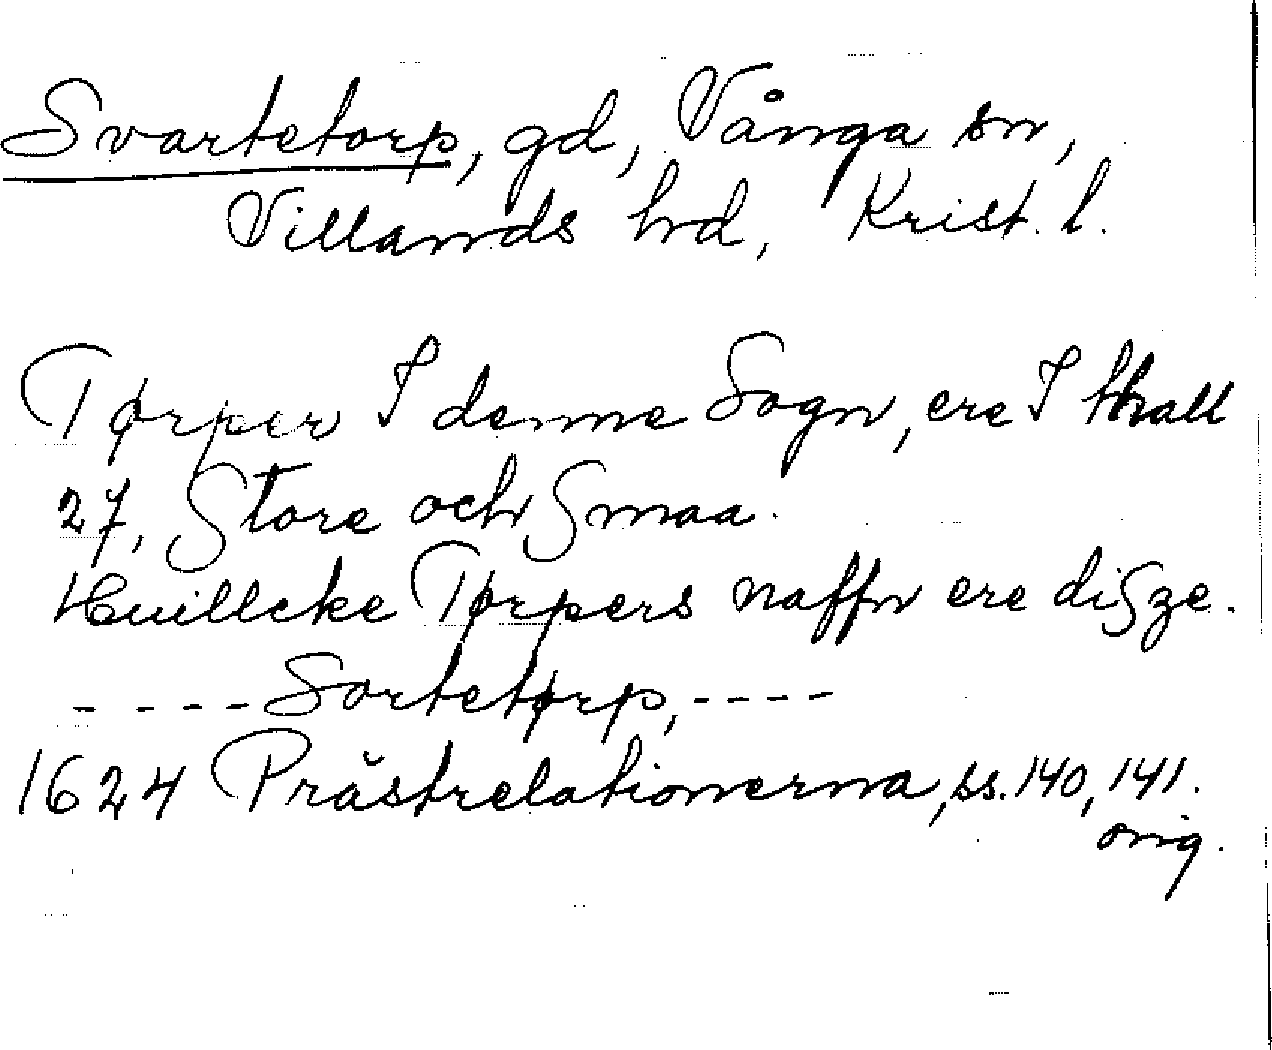 Svartetorp, gd, Vånga sn,
Villands hd, Krist. l.
Tørper I denne Sogn, ere I thall
27, Store och Smaa.
Huillcke Tørpers naffn ere disze.
- - - - Sortetørp, - - - -
1624 Prästrelationerna, ss. 140, 141.
orig.